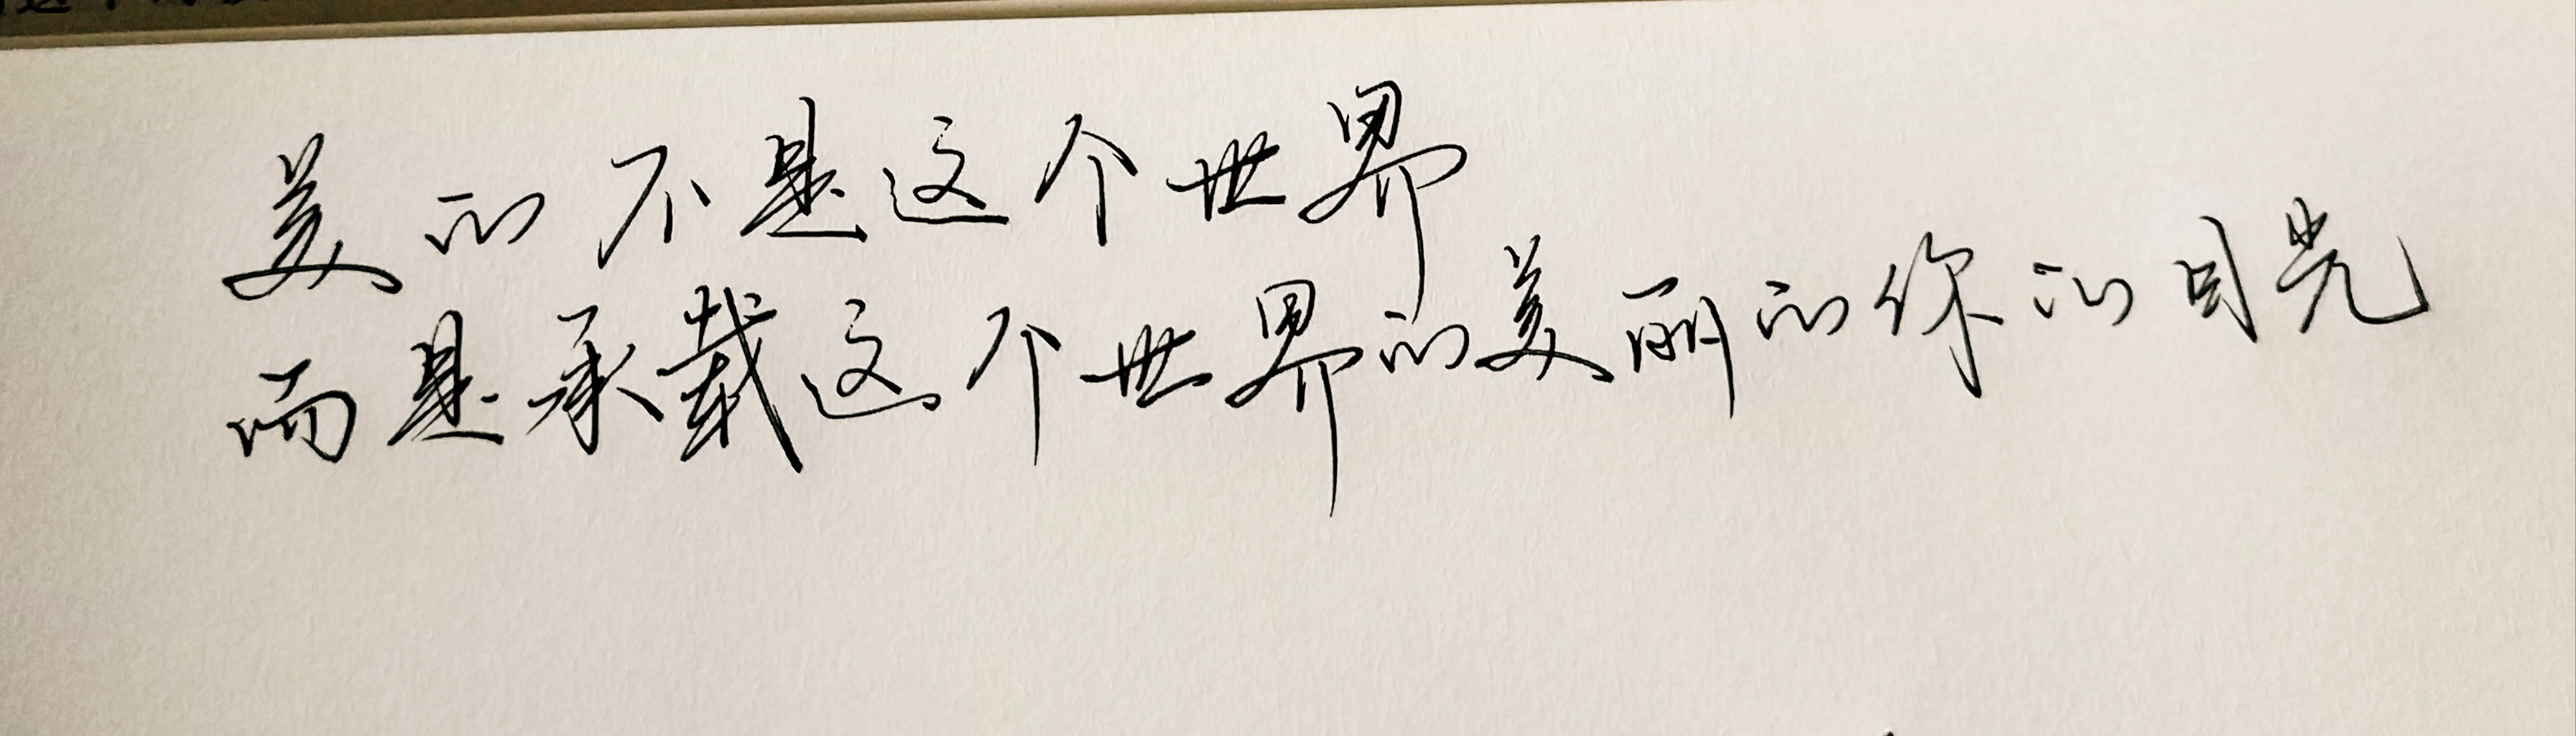 美的不是这个世界
而是承载这个世界的美丽的你的目光